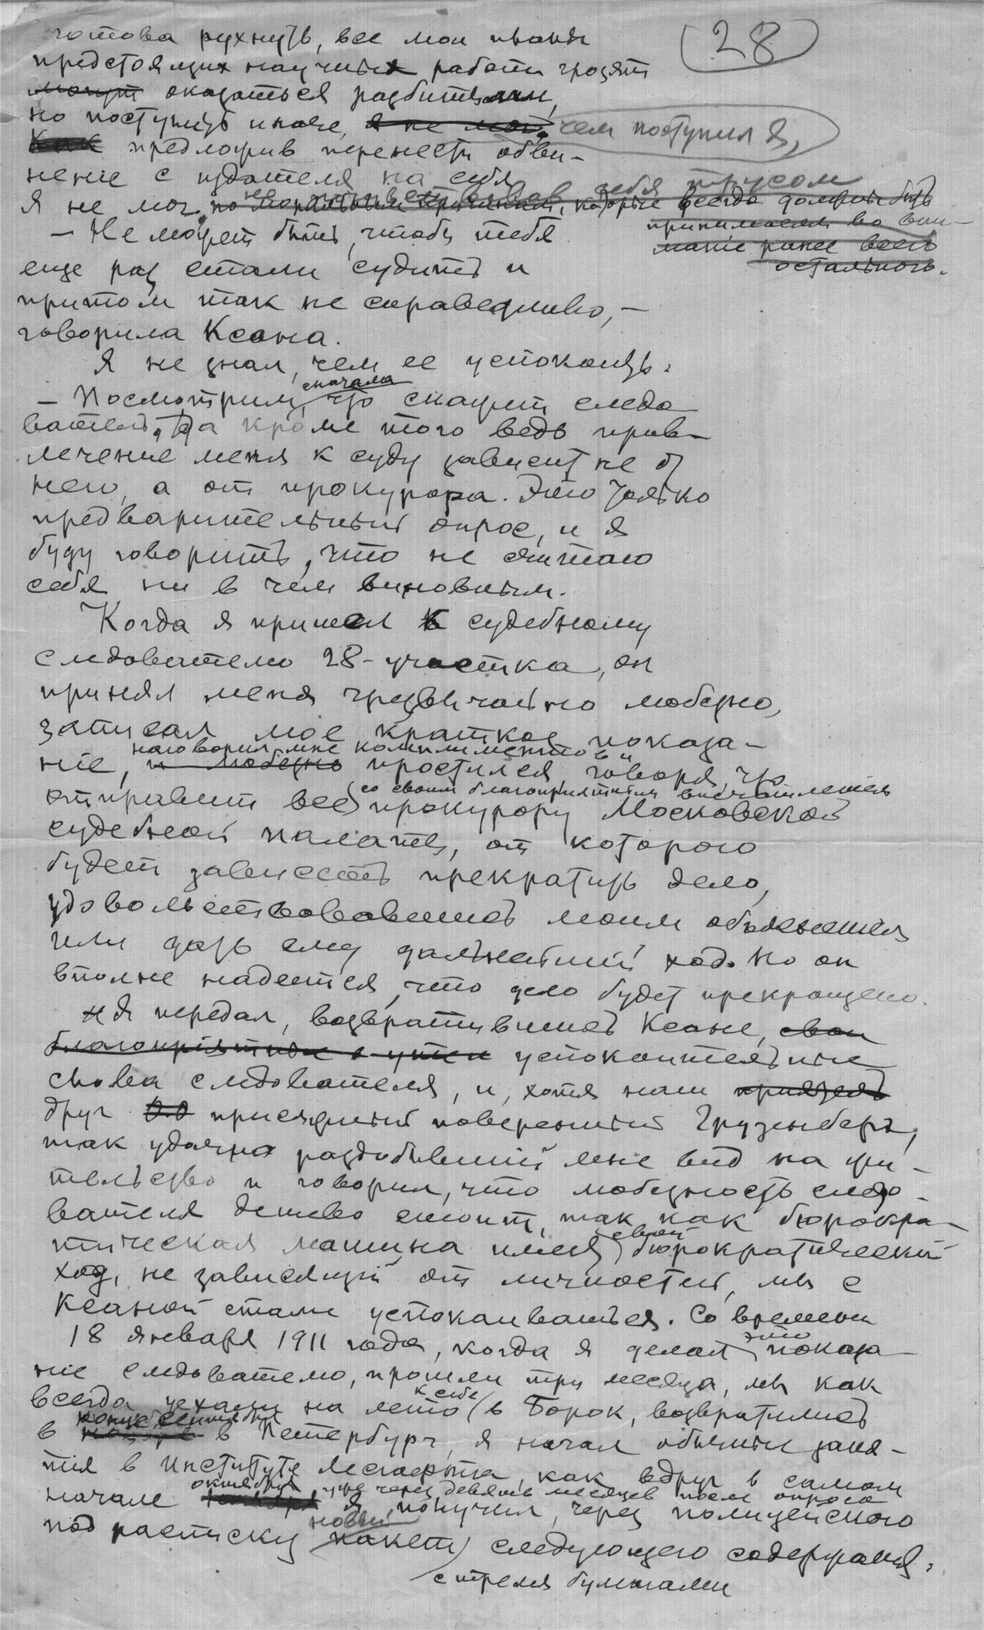 28
готова рухнуть, все мои планы
предстоящих научных работ грозят
могут оказаться разбитыми,
но поступить иначе, я не мог. чем поступил я,
Как предложив перенести обви-
нение с издателя на себя
не назвав себя трусом
Я не мог по моральным причинам, которые всегда должны быть
принимаемы во вни-
мание ранее всего
остального.
— Не может быть, чтобы тебя
еще раз стали судить и
притом так не справедливо, —
говорила Ксана.
Я не знал, чем ее успокоить.
сначала
— Посмотрим, что скажет следо
ватель. Да кроме того ведь прив-
лечение меня к суду зависит не от
него, а от прокурора. Это только
предварительный опрос, и я
буду говорить, что не считаю
себя ни в чем виновным.
Когда я пришел к судебному
следователю 28-участка, он
принял меня чрезвычайно любезно,
записал мое краткое показа-
наговорил мне комплиментов и
ние, и любезно простился, говоря, что
со своим благоприятным
отправит все прокурору Московской
судебной палаты, от которого
будет зависеть прекратить дело,
удовольствовавшись моим объяснением
или дать ему дальнейший ход. Но он
вполне надеется, что дело будет прекращено.
Я передал, возвратившись Ксане, свои
благоприятные успокоительные
слова следователя, и, хотя наш приятель
друг О.О присяжный поверенный Грузенберг,
так удачно раздобывший мне вид на жи-
тельство и говорил, что любезность следо-
вателя дешево стоит, так как бюрокра-
свой
тическая машина имеет бюрократический
ход, не зависящий от личностей, мы с
Ксаной стали успокаиваться. Со времени
это
18 января 1911 года, когда я делал показа-
ние следователю, прошли три месяца, мы как
к себе
всегда уехали на лето в Борок, возвратились
конце сентября
в в Петербург, я начал обычные заня-
тия в Институте Лесгафта, как вдруг в самом
октября, уже через девять месяцев после опроса
начале я получил, через полицейского
новый
под расписку пакет следующего содержания:
с тремя бумагами